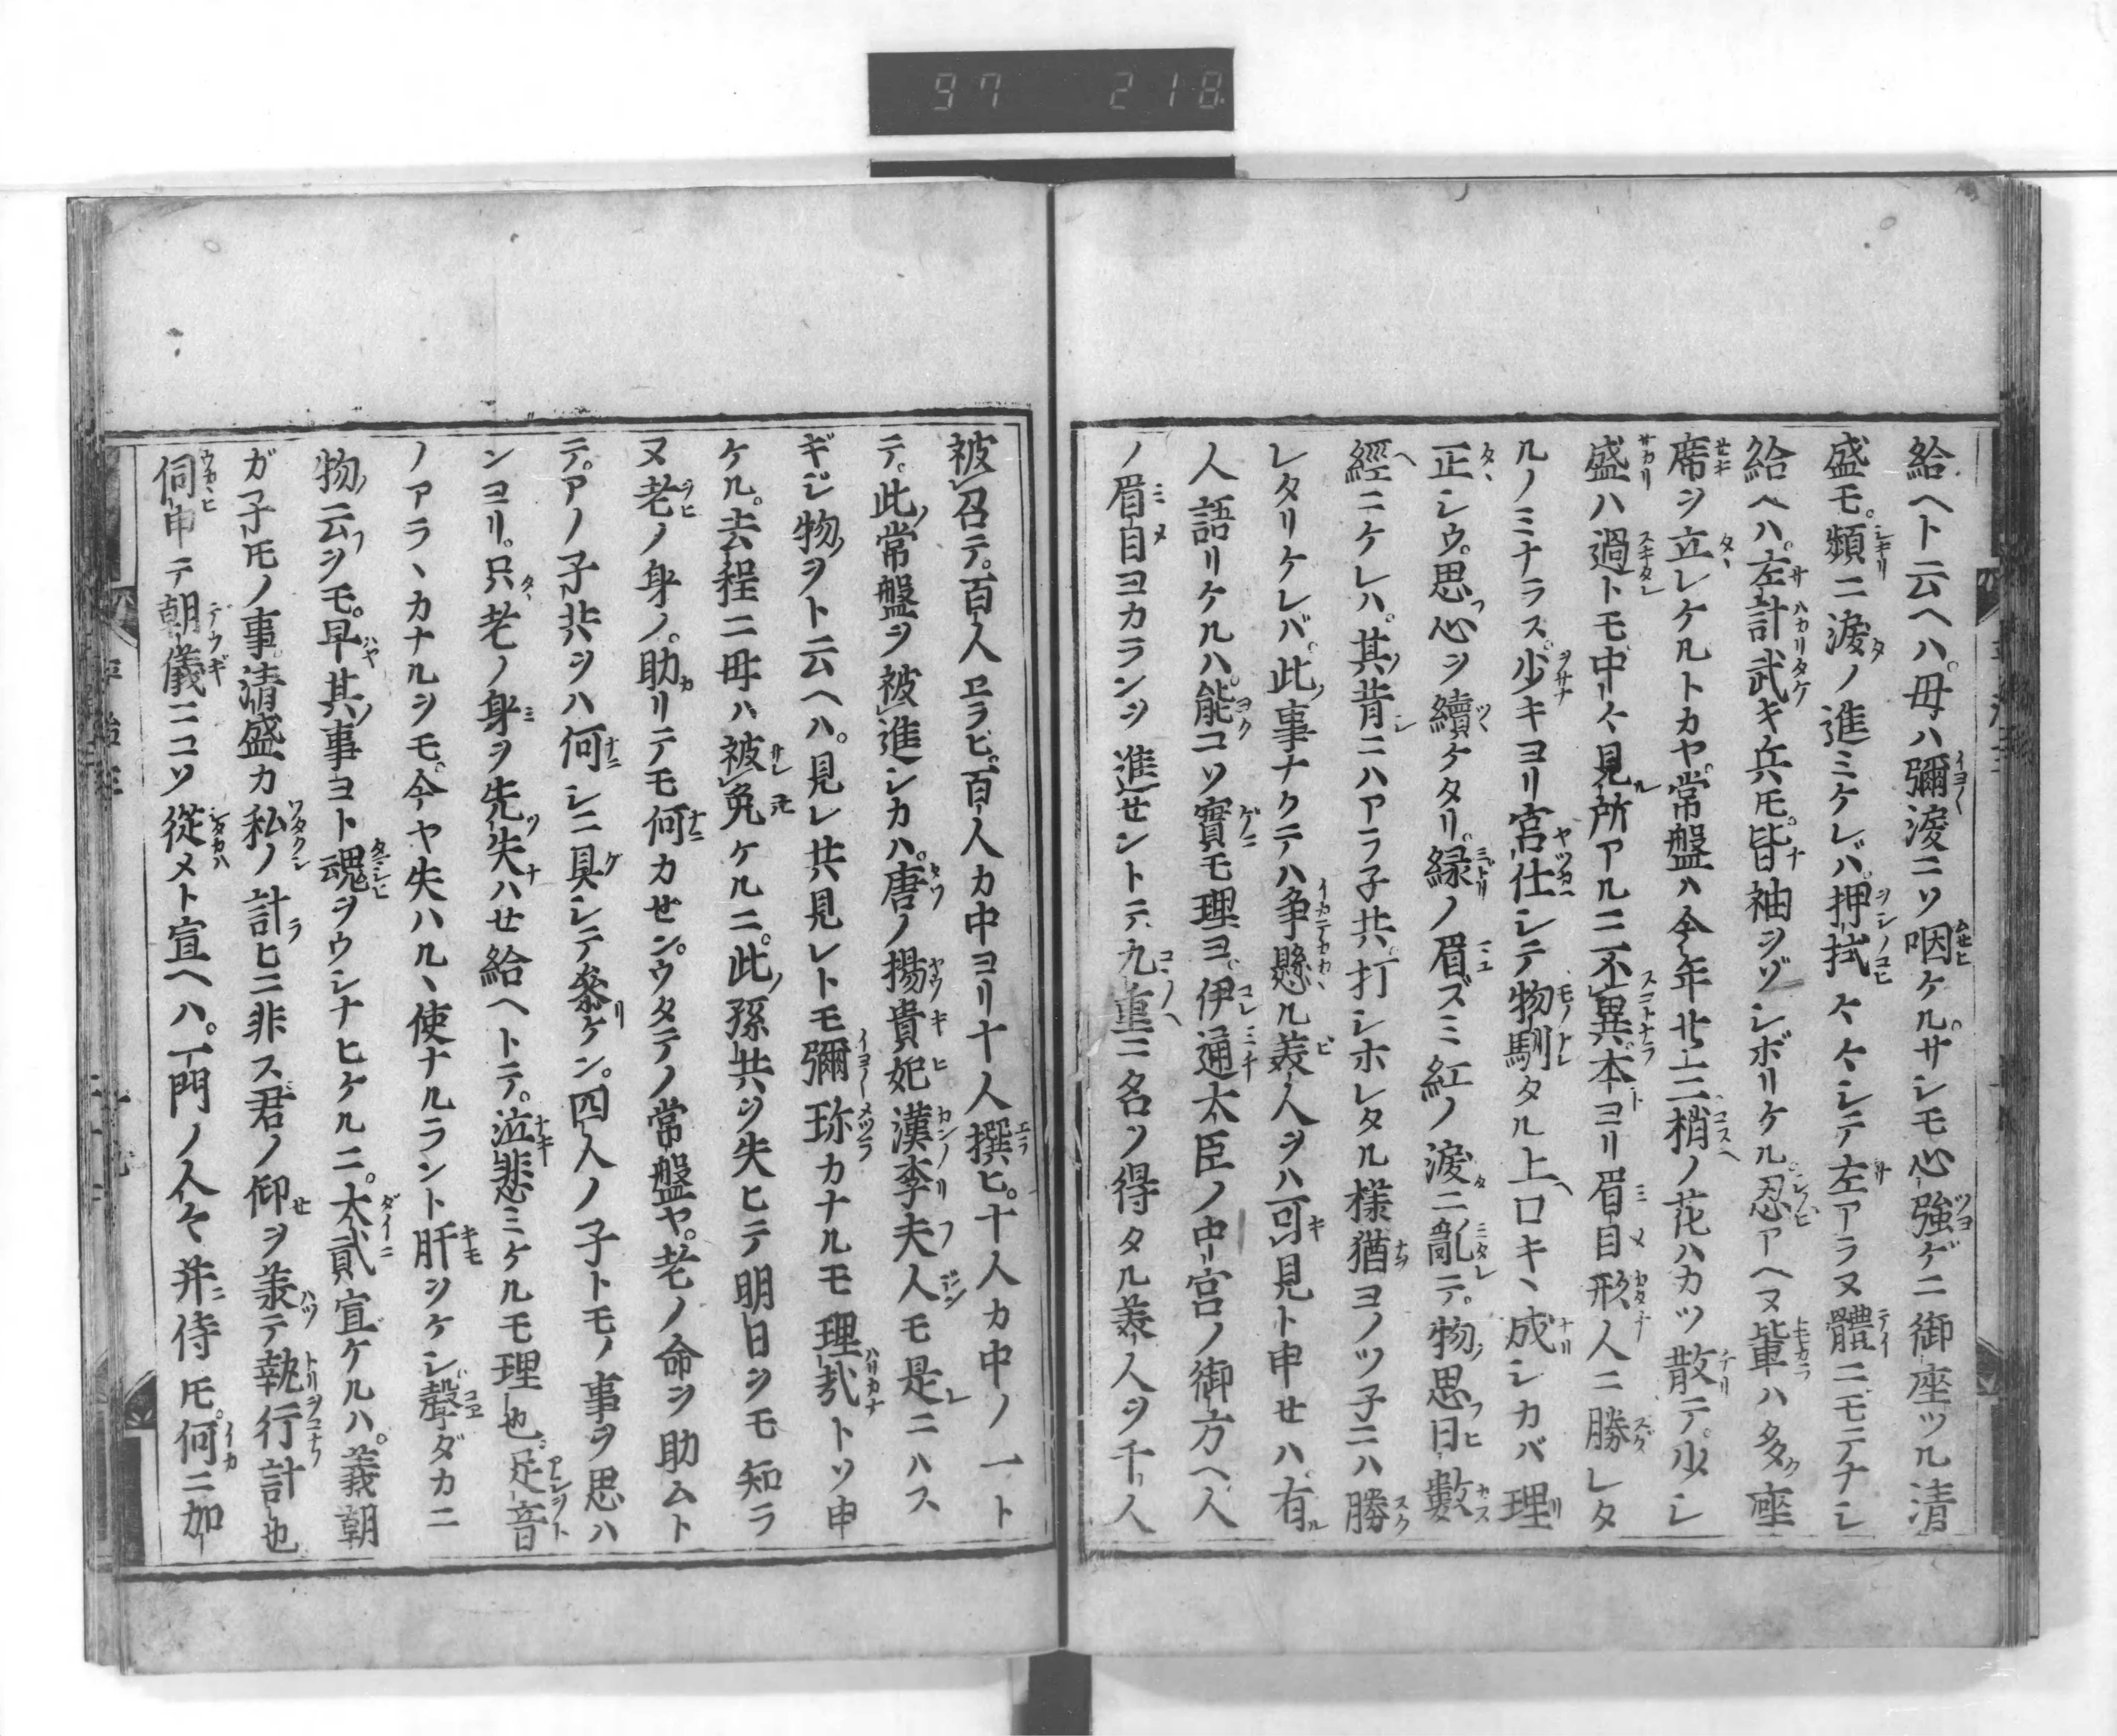 97 218
給ヘト云ヘハ。母ハ彌涙ニソ咽ケル。サシモ心強ゲニ御座ツル清
盛モ。頻ニ涙ノ進ミケレバ。押拭ヘヘシテ左アラヌ體ニモテナシ
給ヘハ。左計武キ兵𪜈。皆袖シゾシボリケル。忍アヘヌ輩ハ多ク座
席ヲ立レケルトカヤ。常盤ハ今年廿三。梢ノ花ハカツ散テ。少シ
盛ハ過トモ中々見所アルニ不異。本ヨリ眉目形人ニ勝レタ
ルノミナラス。少キヨリ宮仕シテ物馴タル上口キヽ成シカバ理
正シウ。思心ヲ續ケタリ。緑ノ眉ズミ紅ノ涙ニ亂テ。物思日數
經ニケレハ。其昔ニハアラ子共。打シホレタル様猶ヨノツ子ニハ勝
レタリケレバ。此事ナクテハ争懸ル美人ヲハ可見ト申セハ。有
人語リケルハ。能コソ實モ理ヨ。伊通大臣ノ中宮ノ御方ヘ人
ノ眉目ヨカランヲ進セントテ。九重ニ名ヲ得タル美人ヲ千人
被召テ。百人エラビ。百人カ中ヨリ十人撰ヒ。十人カ中ノ一ト
テ。此常盤ヲ被進シカハ。唐ノ揚貴妃漢李夫人モ是ニハス
ギジ物ヲト云ヘハ。見レ共見レトモ彌珎カナルモ理哉トソ申
ケル。去程ニ母ハ被免ケルニ。此孫共ヲ失ヒテ明日ヲモ知ラ
ヌ老ノ身ノ。助リテモ何カセン。ウタテノ常盤ヤ。老ノ命ヲ助ムト
テ。アノ子共ヲハ何シニ具シテ參ケン。四人ノ子トモノ事ヲ思ハ
ンヨリ。只老ノ身ヲ先失ハせ給ヘトテ。泣悲ミケルモ理也。足音
ノアラヽカナルヲモ。今ヤ失ハルヽ使ナルラント肝ヲケシ。聲ダカニ
物云ヲモ。早其事ヨト魂ヲウシナヒケルニ。大貳宣ケルハ。義朝
ガ子𪜈ノ事。清盛カ私ノ計ヒニ非ス。君ノ仰ヲ羕テ執行計也
伺申テ朝儀ニコソ從メト宣ヘハ。一門ノ人々并侍𪜈。何ニ加